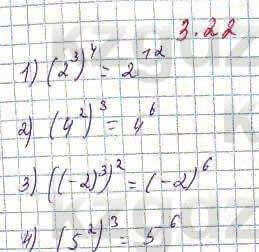 3.22
1) (2³)⁴ = 2¹²
2) (4²)³ = 4⁶
3) ((-2)³)² = (-2)⁶
4) (5²)³ = 5⁶